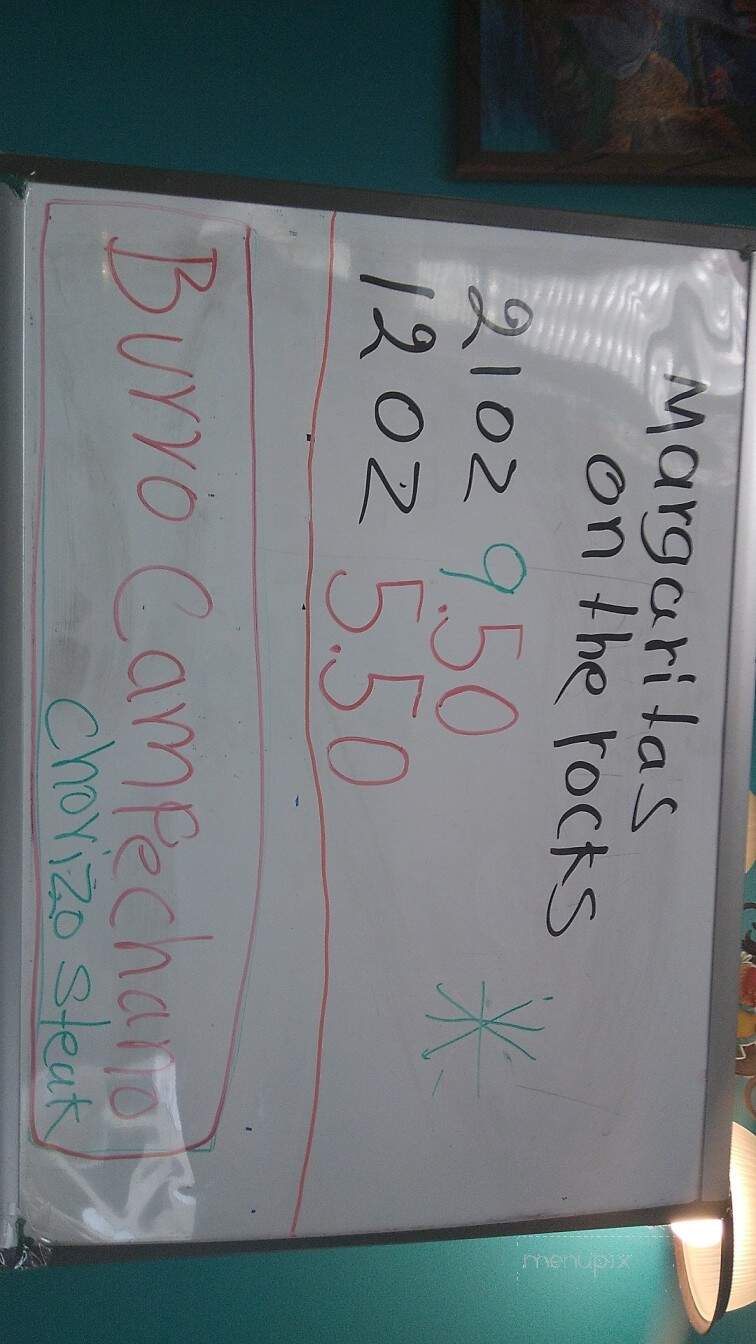 Margaritas
on the rocks
21oz 9.50
12 oz 5.50
Burro Campechano
Chorizo Steak
menupix